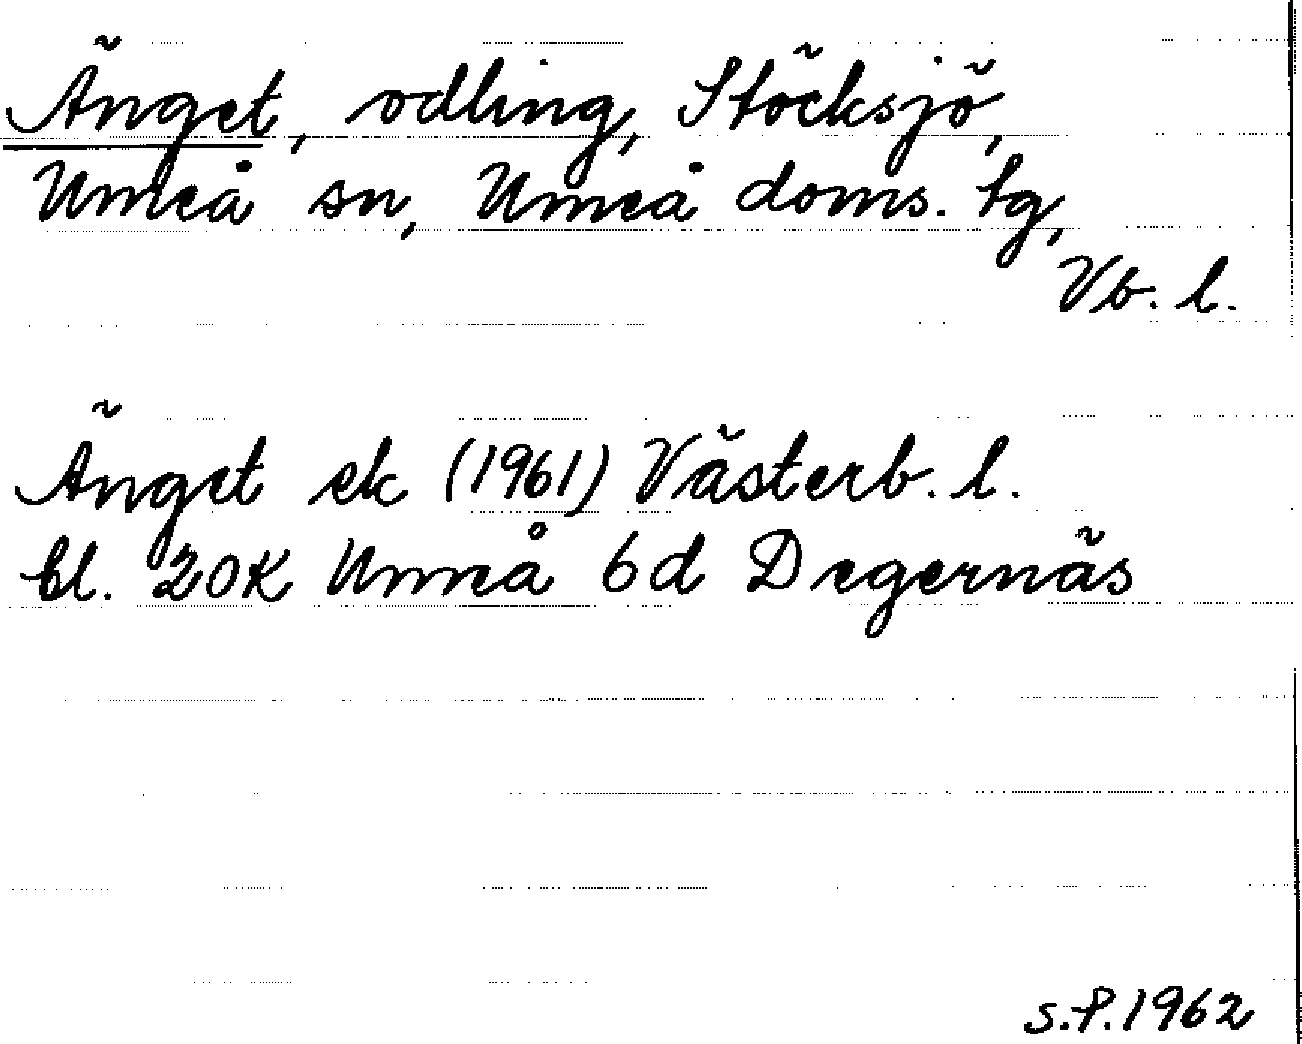 Änget, odling, Stöcksjö,
Umeå sn, Umeå doms. tg,
Vb. l.
Änget ek (1961) Västerb. l.
bl. 20K Umeå 6d Degernäs
S.P.1962